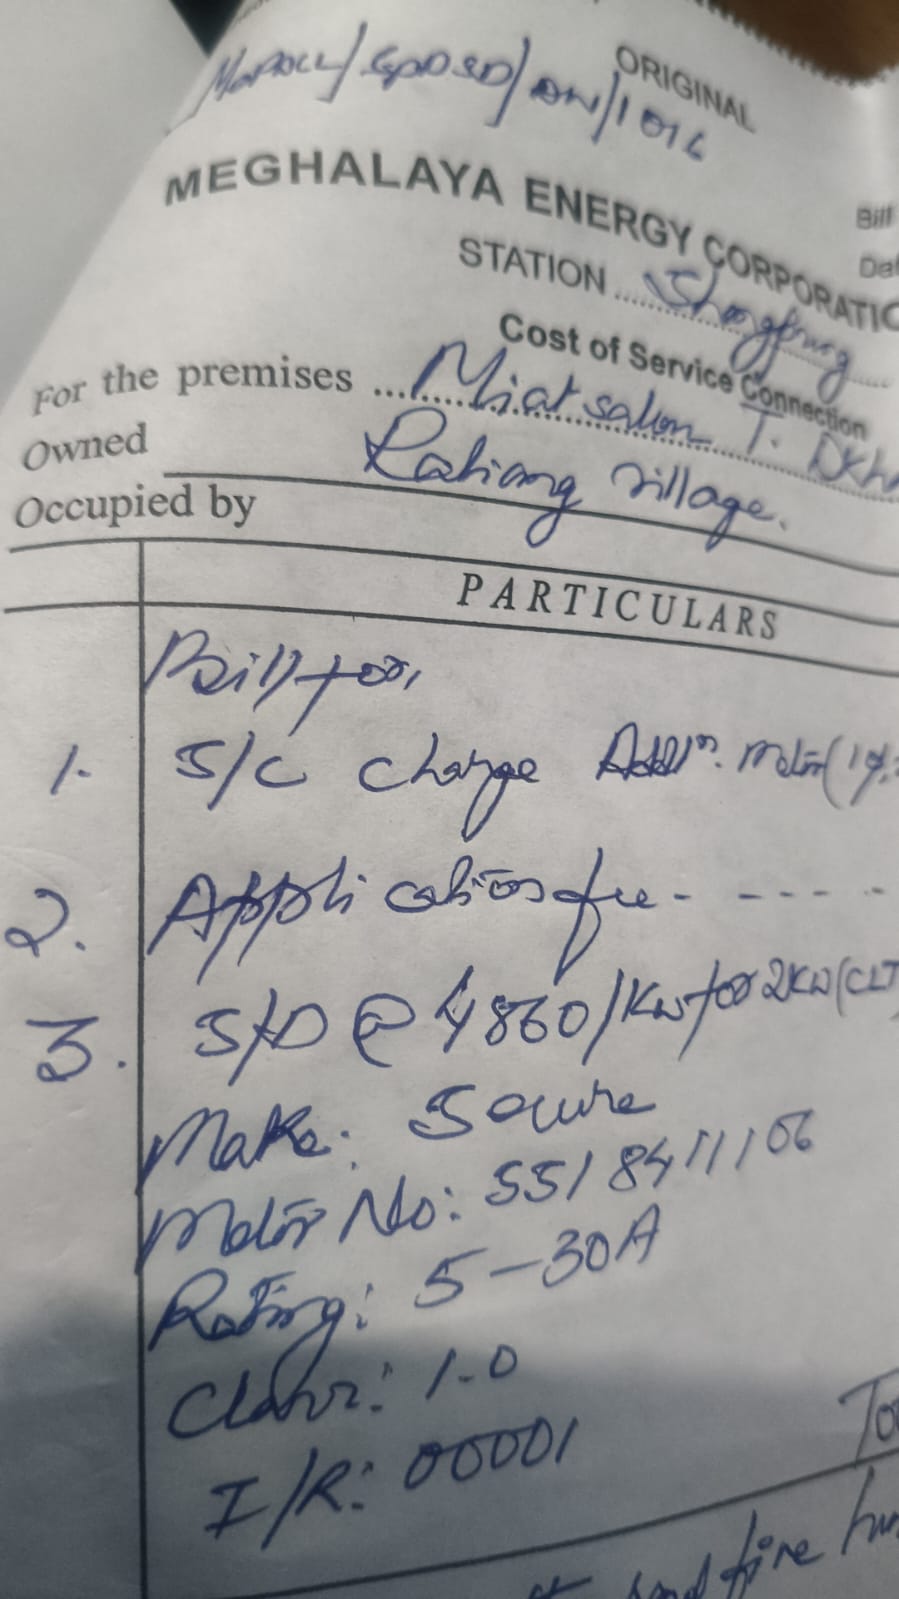 ORIGINAL
MePDCL/SPDSD/DN/1016
Bill
MEGHALAYA ENERGY CORPORATIO
STATION ...... Shangpung
Cost of Service Connection
For the premises ... Miatsalan T. Dkh
Owned
Raliang village.
Occupied by
PARTICULARS
Bill for,
1. S/C charge Addln. meter (1φ
2. Application fee - - - - -
3. S/D @ 4860/Kw for 2KW (CLT
Make: Secure
Meter No: 5518411106
Rating: 5-30A
Class: 1.0
I/R: 00001
five hun